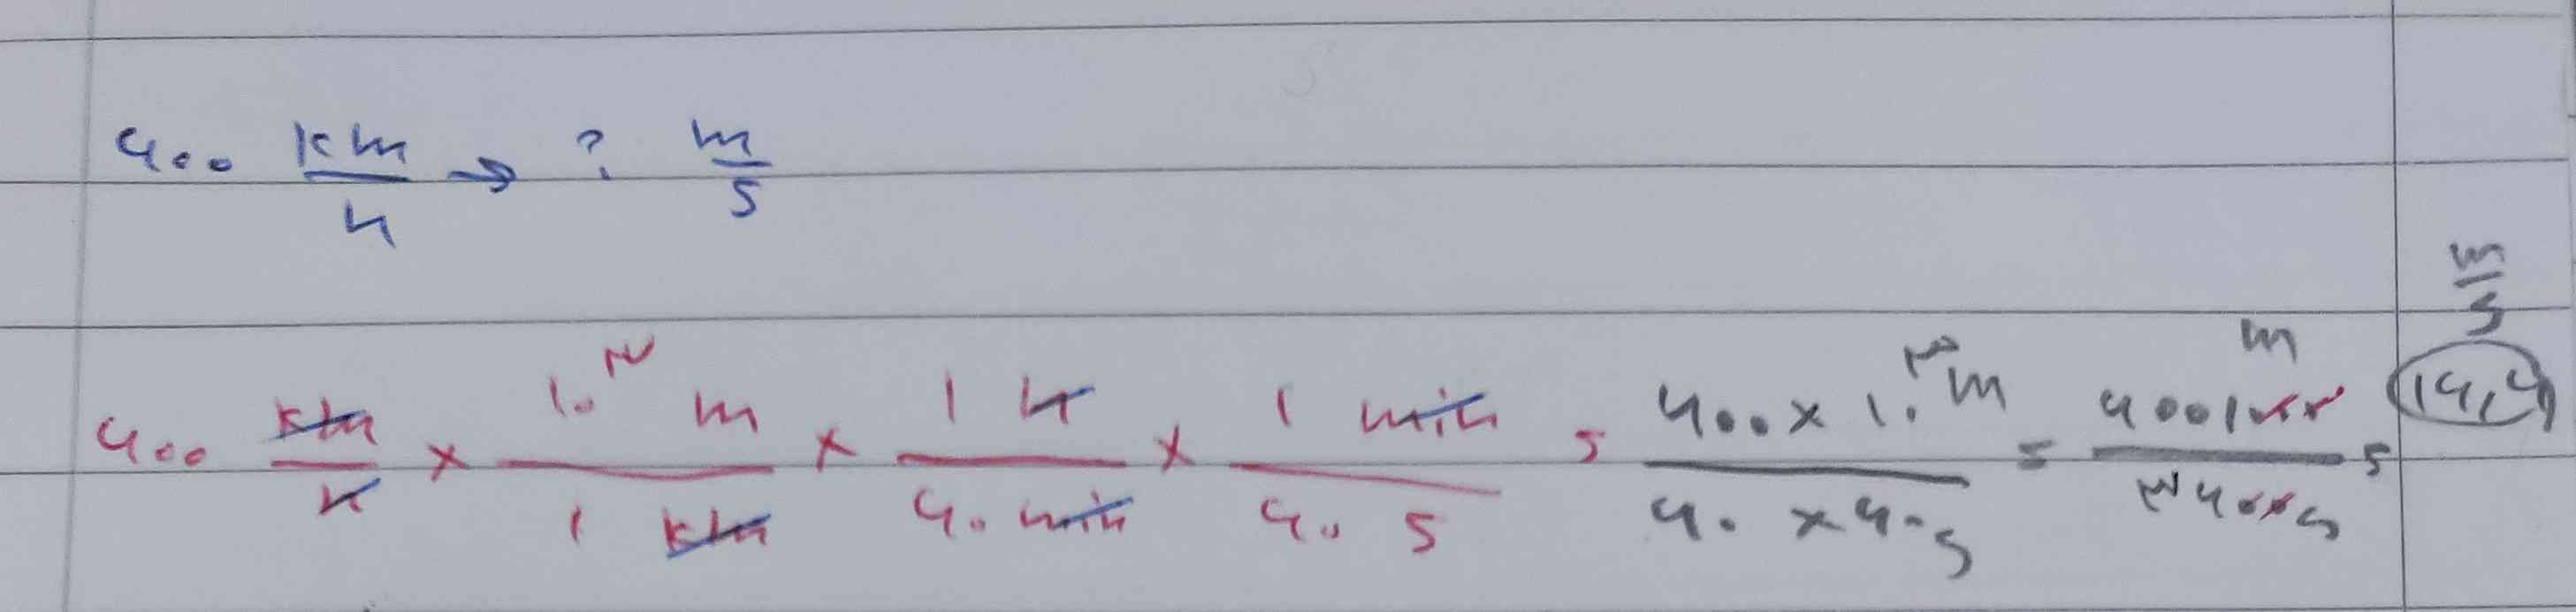 ۶۰۰ km/h → ? m/s
۶۰۰ km/h × ۱۰^۳ m/۱ km × ۱ h/۶۰ min × ۱ min/۶۰ s = ۶۰۰×۱۰^۳ m/۶۰×۶۰ s = ۶۰۰۱۰۰ m/۳۶۰۰ s = ۱۶,۶ m/s